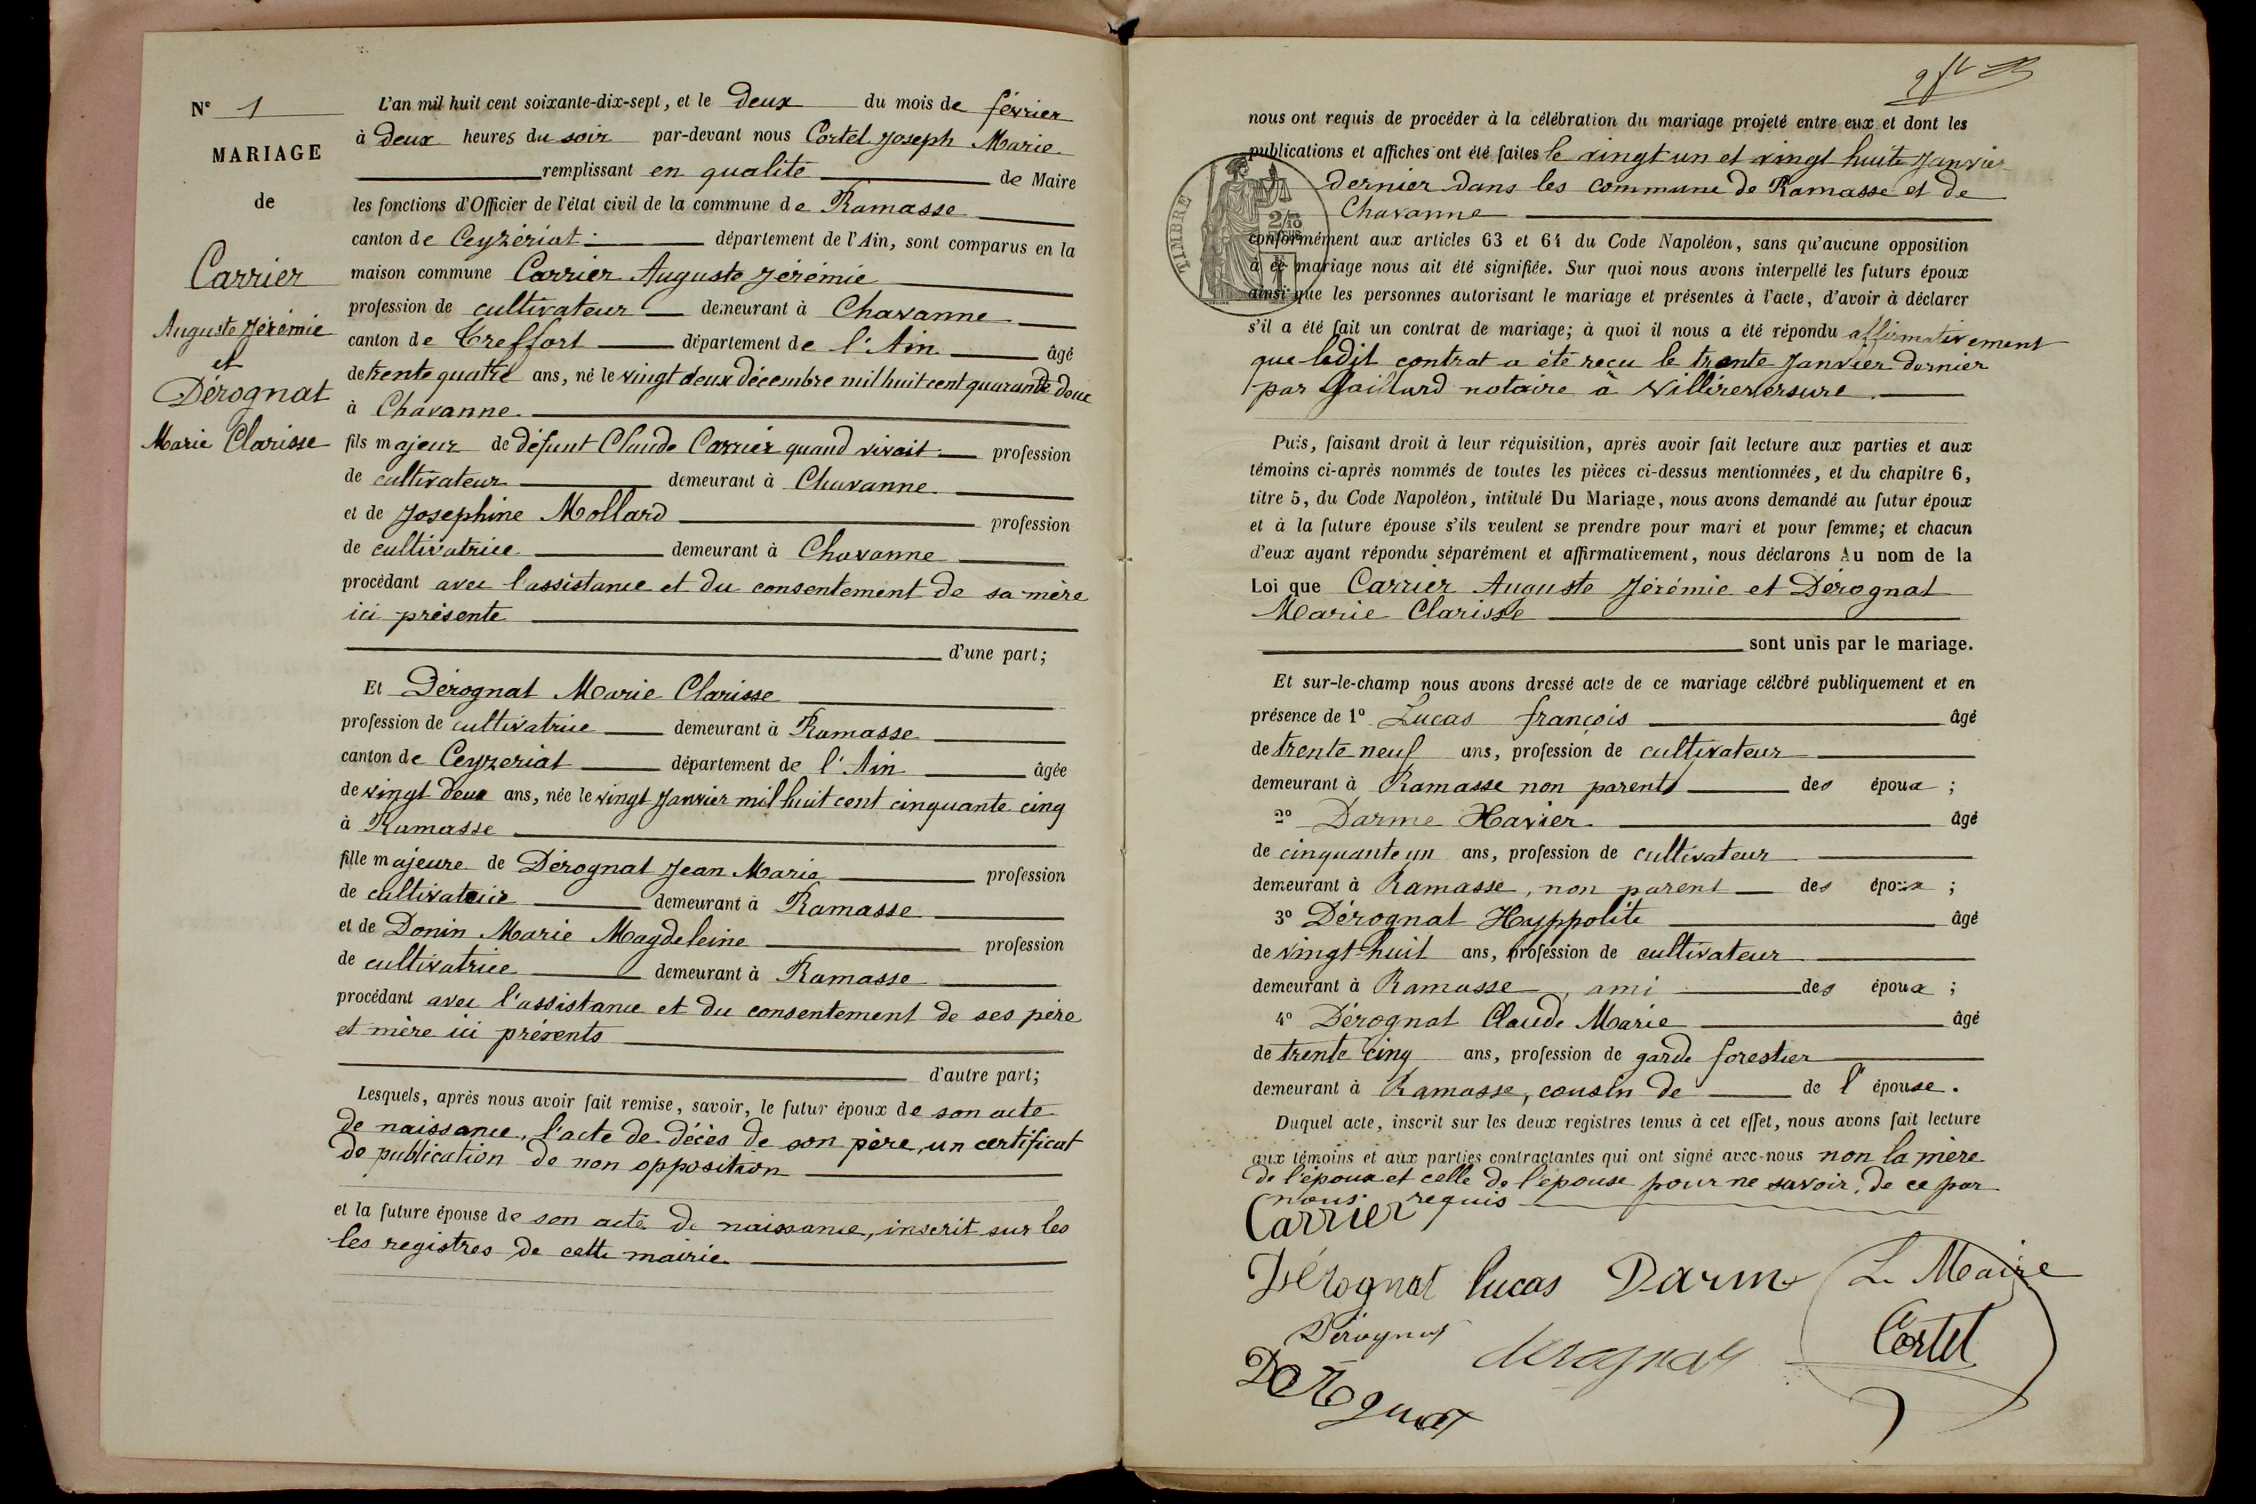 N° 1
MARIAGE
de
Carrier
Auguste Jérémie
et
Dérognat
Marie Clarisse
L'an mil huit cent soixante-dix-sept, et le deux du mois de février
à deux heures du soir par-devant nous Cortel Joseph Marie
remplissant en qualité de Maire
les fonctions d'Officier de l'état civil de la commune de Ramasse
canton de Ceyzériat département de l'Ain, sont comparus en la
maison commune Carrier Auguste Jérémie
profession de cultivateur demeurant à Chavanne
canton de Treffort département de l'Ain âgé
de trente quatre ans, né le vingt deux décembre mil huit cent quarante deux
à Chavanne
fils majeur de défunt Claude Carrier quand vivait profession
de cultivateur demeurant à Chavanne
et de Josephine Mollard profession
de cultivatrice demeurant à Chavanne
procédant avec l'assistance et du consentement de sa mère
ici présente
d'une part;
Et Dérognat Marie Clarisse
profession de cultivatrice demeurant à Ramasse
canton de Ceyzeriat département de l'Ain âgée
de vingt deux ans, née le vingt Janvier mil huit cent cinquante cinq
à Ramasse
fille majeure de Dérognat Jean Marie profession
de cultivateur demeurant à Ramasse
et de Donin Marie Magdeleine profession
de cultivatrice demeurant à Ramasse
procédant avec l'assistance et du consentement de ses père
et mère ici présents
d'autre part;
Lesquels, après nous avoir fait remise, savoir, le futur époux de son acte
de naissance, l'acte de décès de son père, un certificat
de publication de non opposition
et la future épouse de son acte de naissance, inscrit sur les
les registres de cette mairie
nous ont requis de procéder à la célébration du mariage projeté entre eux et dont les
publications et affiches ont été faites le vingt un et vingt huite Janvier
dernier dans les commune de Ramasse et de
Chavanne
TIMBRE
conformément aux articles 63 et 64 du Code Napoléon, sans qu'aucune opposition
à ce mariage nous ait été signifiée. Sur quoi nous avons interpellé les futurs époux
ainsi que les personnes autorisant le mariage et présentes à l'acte, d'avoir à déclarer
s'il a été fait un contrat de mariage; à quoi il nous a été répondu affirmativement
que ledit contrat a été reçu le trente Janvier dernier
par Gaillard notaire à Villereversure
Puis, faisant droit à leur réquisition, après avoir fait lecture aux parties et aux
témoins ci-après nommés de toutes les pièces ci-dessus mentionnées, et du chapitre 6,
titre 5, du Code Napoléon, intitulé Du Mariage, nous avons demandé au futur époux
et à la future épouse s'ils veulent se prendre pour mari et pour femme; et chacun
d'eux ayant répondu séparément et affirmativement, nous déclarons Au nom de la
Loi que Carrier Auguste Jérémie et Dérognat
Marie Clarisse
sont unis par le mariage.
Et sur-le-champ nous avons dressé acte de ce mariage célébré publiquement et en
présence de 1° Lucas françois âgé
de trente neuf ans, profession de cultivateur
demeurant à Ramasse non parents des époux ;
2° Darme Xavier âgé
de cinquante un ans, profession de cultivateur
demeurant à Ramasse, non parent des époux ;
3° Dérognat Hyppolite âgé
de vingt-huit ans, profession de cultivateur
demeurant à Ramasse, ami des époux ;
4° Dérognat Claude Marie âgé
de trente cinq ans, profession de garde forestier
demeurant à Ramasse, cousin de de l'épouse.
Duquel acte, inscrit sur les deux registres tenus à cet effet, nous avons fait lecture
aux témoins et aux parties contractantes qui ont signé avec-nous non la mère
de l'époux et celle de l'épouse pour ne savoir, de ce par
nous requis
Carrier
Dérognat lucas Darme Le Maire
Dérognat derognat Cortel
DeRognat